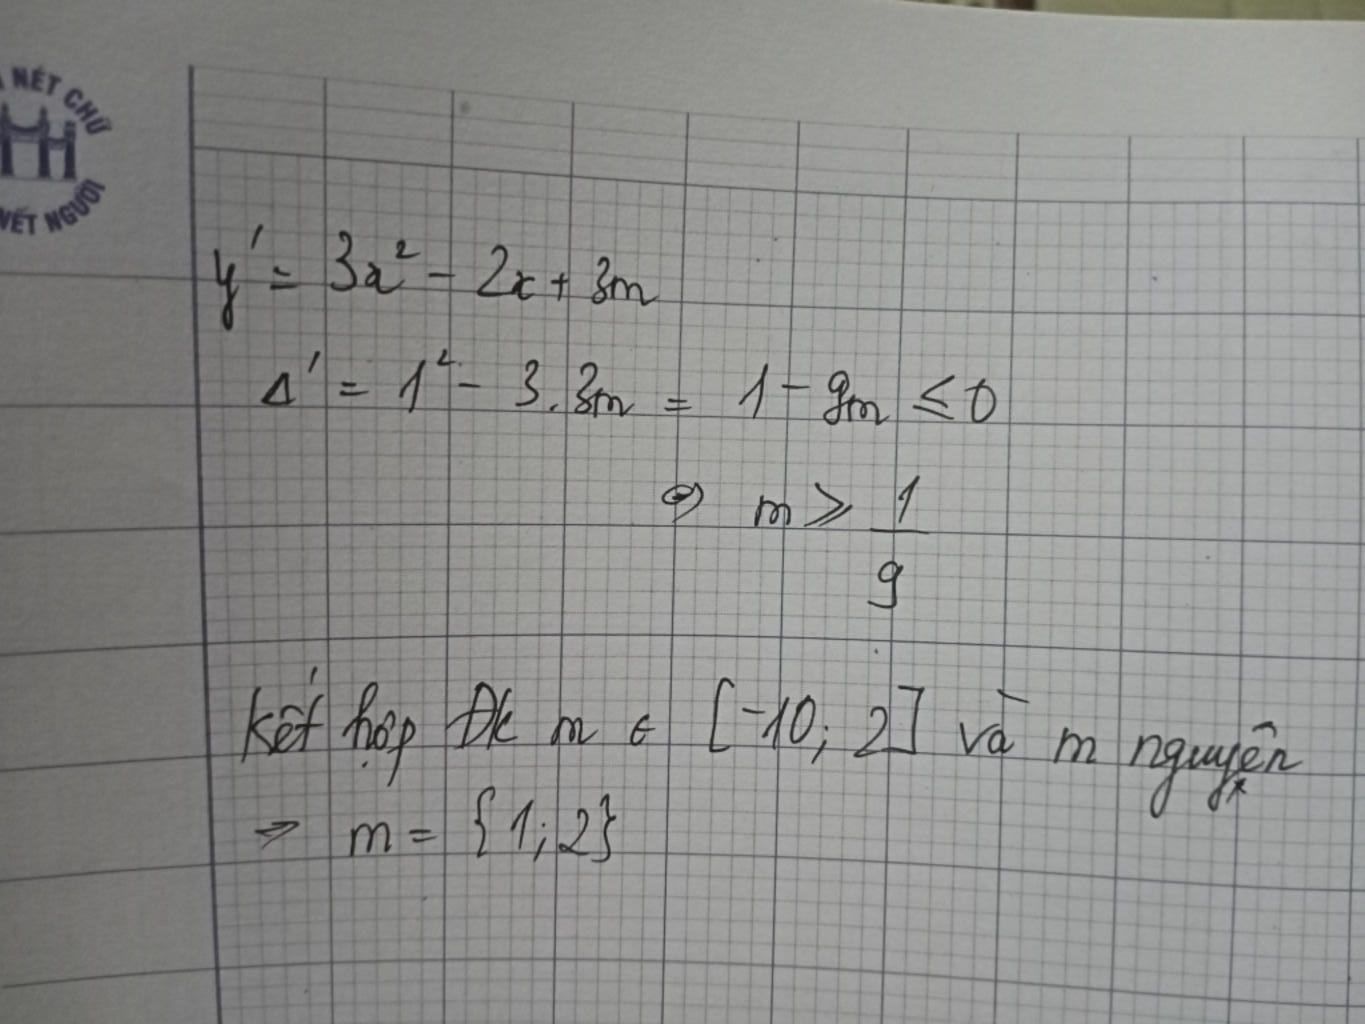 NÉT CHỮ
NẾT NGƯỜI
y' = 3x² - 2x + 3m
Δ' = 1² - 3.3m = 1 - 9m ≤ 0
⇔ m ≥ 1/9
Kết hợp Đk m ∈ [-10; 2] và m nguyên
⇒ m = {1; 2}